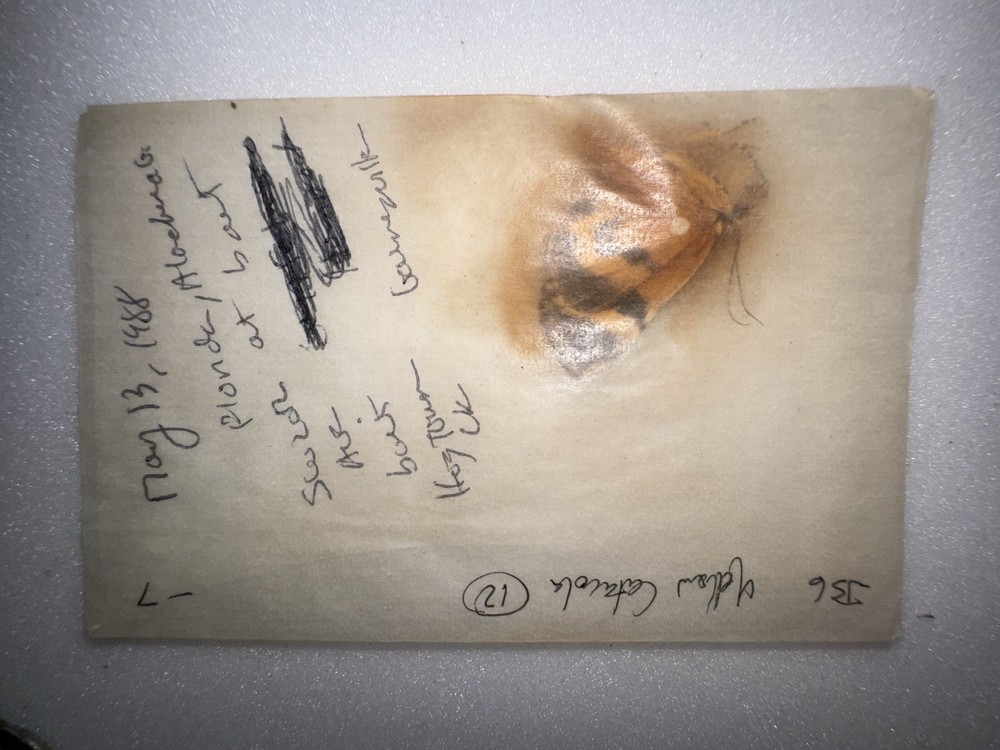 May 13, 1988
Florida, Alachua Co.
at bait
Sugar
at
bait Gainesville
Hog Town
CK
-7
B6 Yellow Catacola (12)